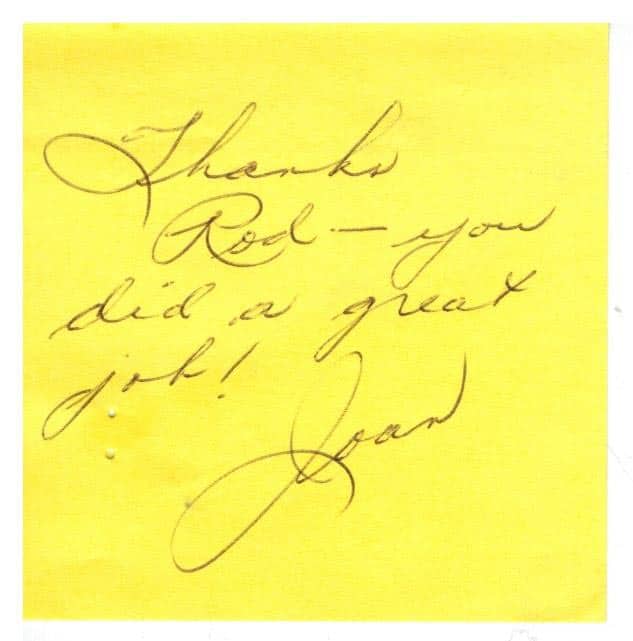 Thanks
Rod — you
did a great
job!
Joan